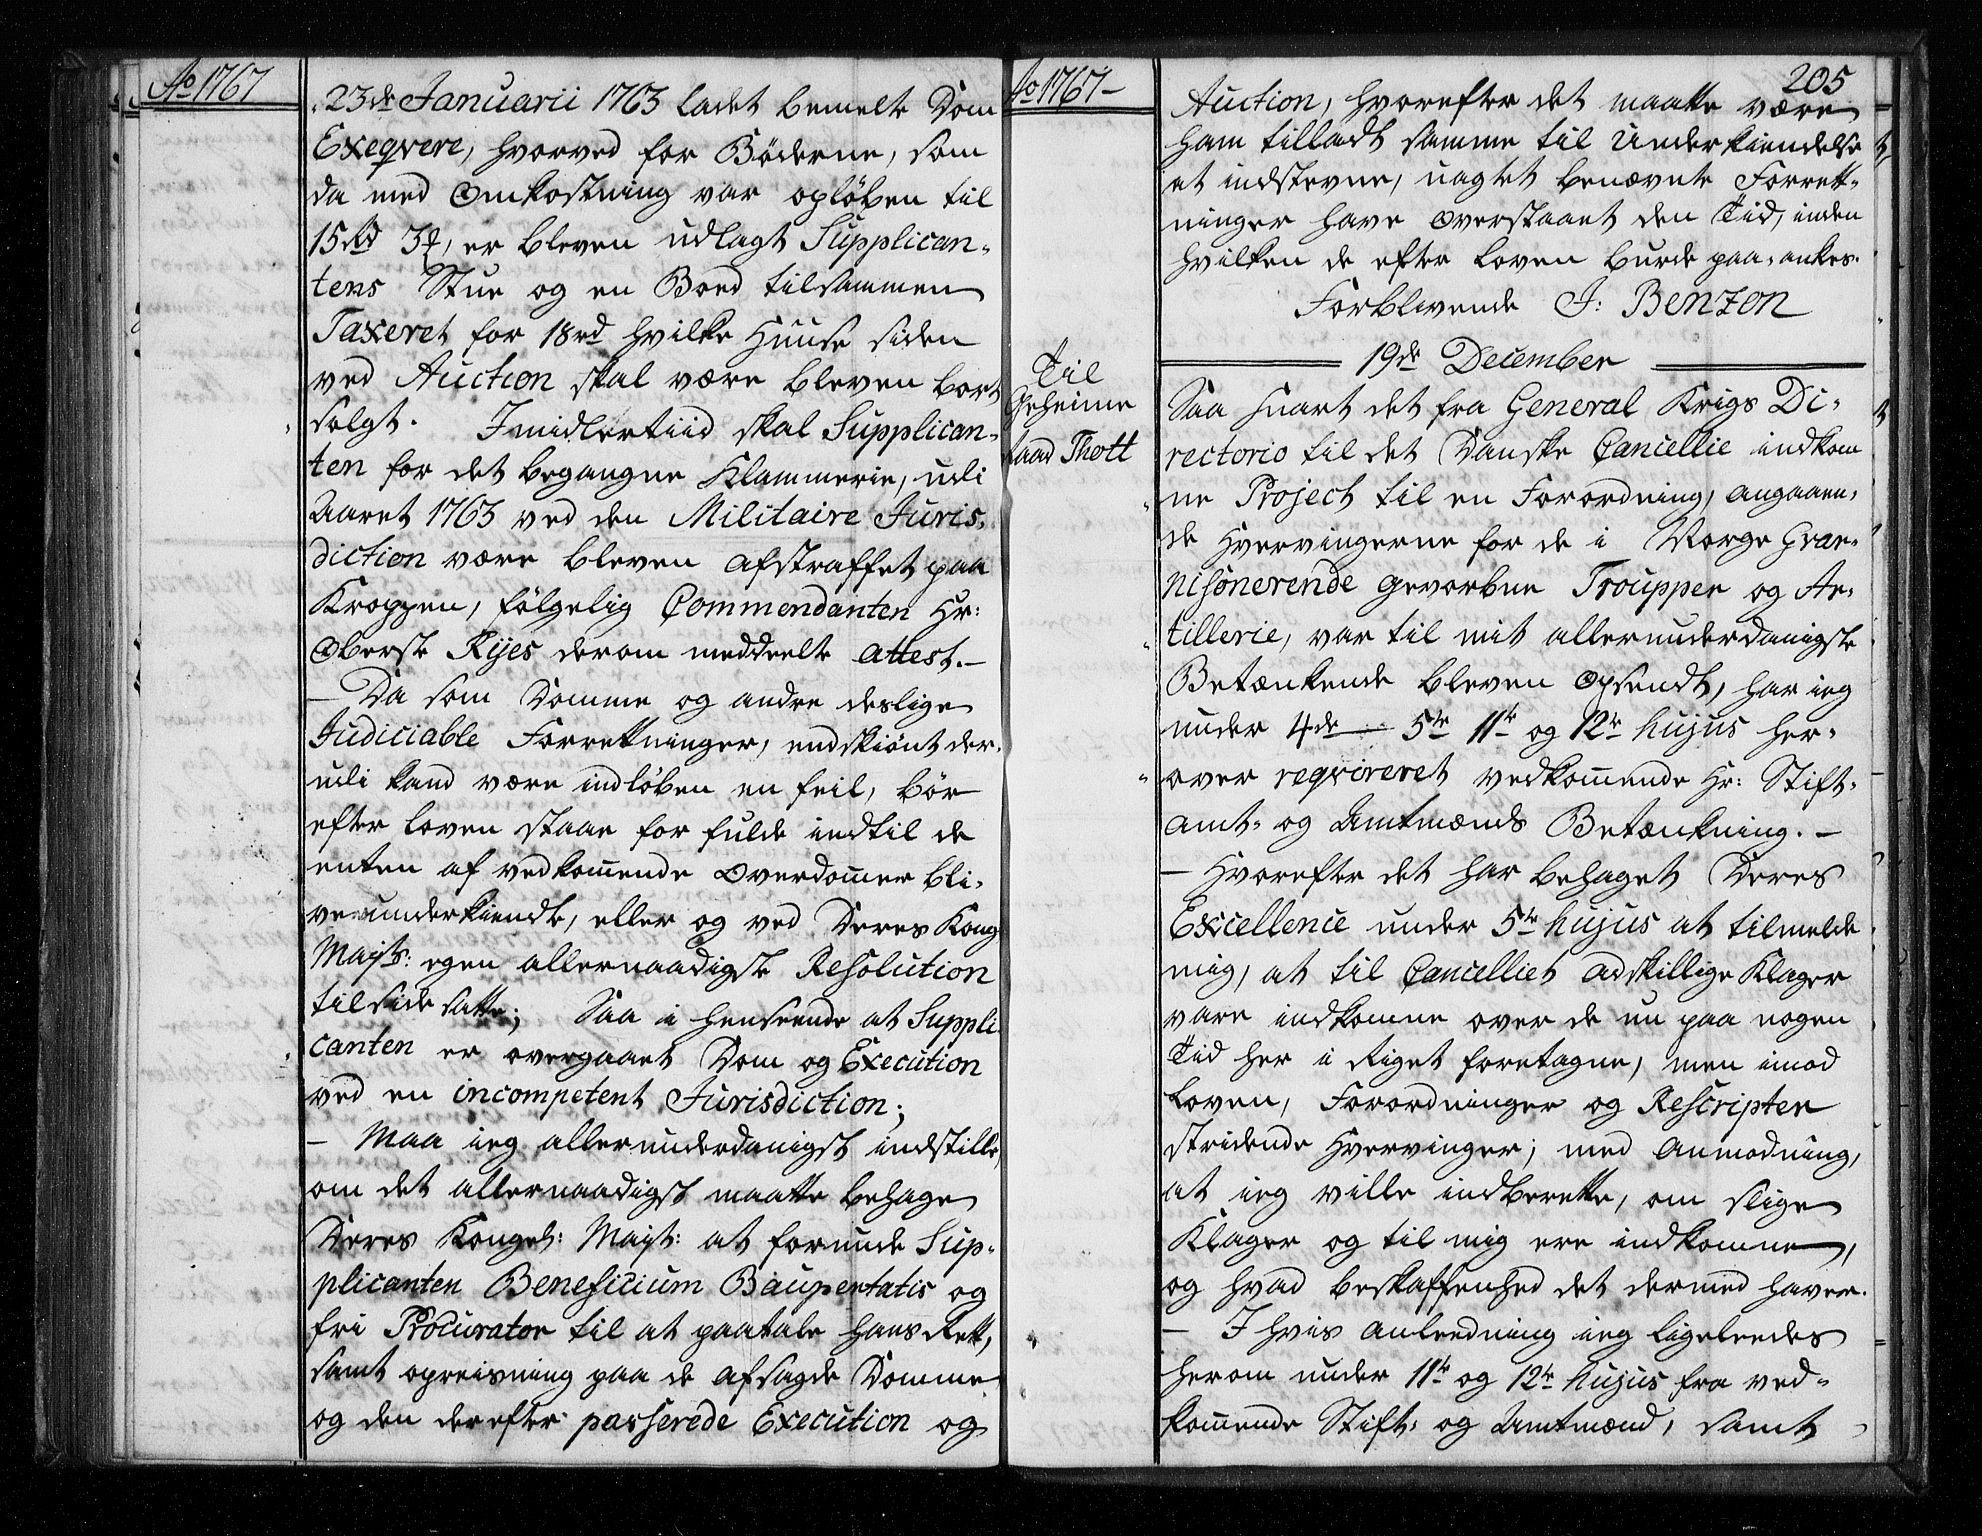 Ao 1767
23de Januarii 1763 ladet bemelte Dom
Exeqvere, hvorved for Böderne, som
da med Omkostning var oplöben til
15rd 3, er bleven udlagt Supplican-
tens Stue og en Boed tilsammen
Taxeret for 18rd hvilke Huuse siden
ved Auction skal være bleven bort
solgt. Imidlertiid skal Supplican-
ten for det begangne Klammerie, udi
Aaret 1763 ved den Militaire Juris-
diction være bleven afstraffet paa
Kroppen, fölgelig Commendanten Hr:
Oberste Rijes derom meddeelte attest.-
- Da som Domme og andre deslige
Judiciable Forrettninger, endskiönt der-
udi kand være indlöben en feil, bör
efter Loven staae for fulde indtil de
enten af vedkommende Overdommer bli-
ve underkiendt, eller og ved Deres Kong
Majts: egen allernaadigste Resolution
tilside satte; Saa i henseende at Suppli
canten er overgaaet Dom og Execution
ved en incompetent Jurisdiction;
- Maa ieg allerunderdanigst indstille,
om det allernaadigst maatte behage
Deres Kongel: Majt: at forunde Sup-
plicanten Beneficium Baupertatis og
fri Procurator til at paatale hans Rett,
samt opreisning paa de afsagde Domme
og den derefter passerede Execution og
Ao 1767-
205
Auction, hvorefter det maatte være
ham tilladt samme til Underkiendelse
at indstevne, uagtet benævnte Forrett-
ninger have overstaaet den Tid, inden
hvilken de efter Loven burde paa-ankes.
Forblivende J: Benzon
19de December
Til
Geheime
raad Thott
Saa snart det fra General Krigs Di-
rectorio til det Danske Cancellie indkom
ne Project til en Forordning, angaaen-
de Hvervingerne for de i Norge Guar-
nisonerende gevorbne Troupper og Ar-
tillerie, var til mit allerunderdanigste
Betænkende bleven Opsendt, har ieg
under 4de 5te 11te og 12te hujus her-
over reqvireret vedkommende Hr: Stift-
amt- og Amtmænds Betænkning. -
- Hvorefter det har behaget Deres
Excellence under 5te hujus at tilmelde
mig, at til Cancelliet adskillige Klager
vare indkomne over de nu paa nogen
Tid her i Riget foretagne, men imod
Loven, Forordninger og Rescripter
stridende Hvervinger; med Anmodning,
at ieg ville indberette, om slige
Klager og til mig ere indkomne,
og hvad beskaffenhed det dermed haver.
- I hvis anleedning ieg ligeleedes
herom under 11te og 12te hujus fra ved-
kommende Stift- og Amtmænd, samt